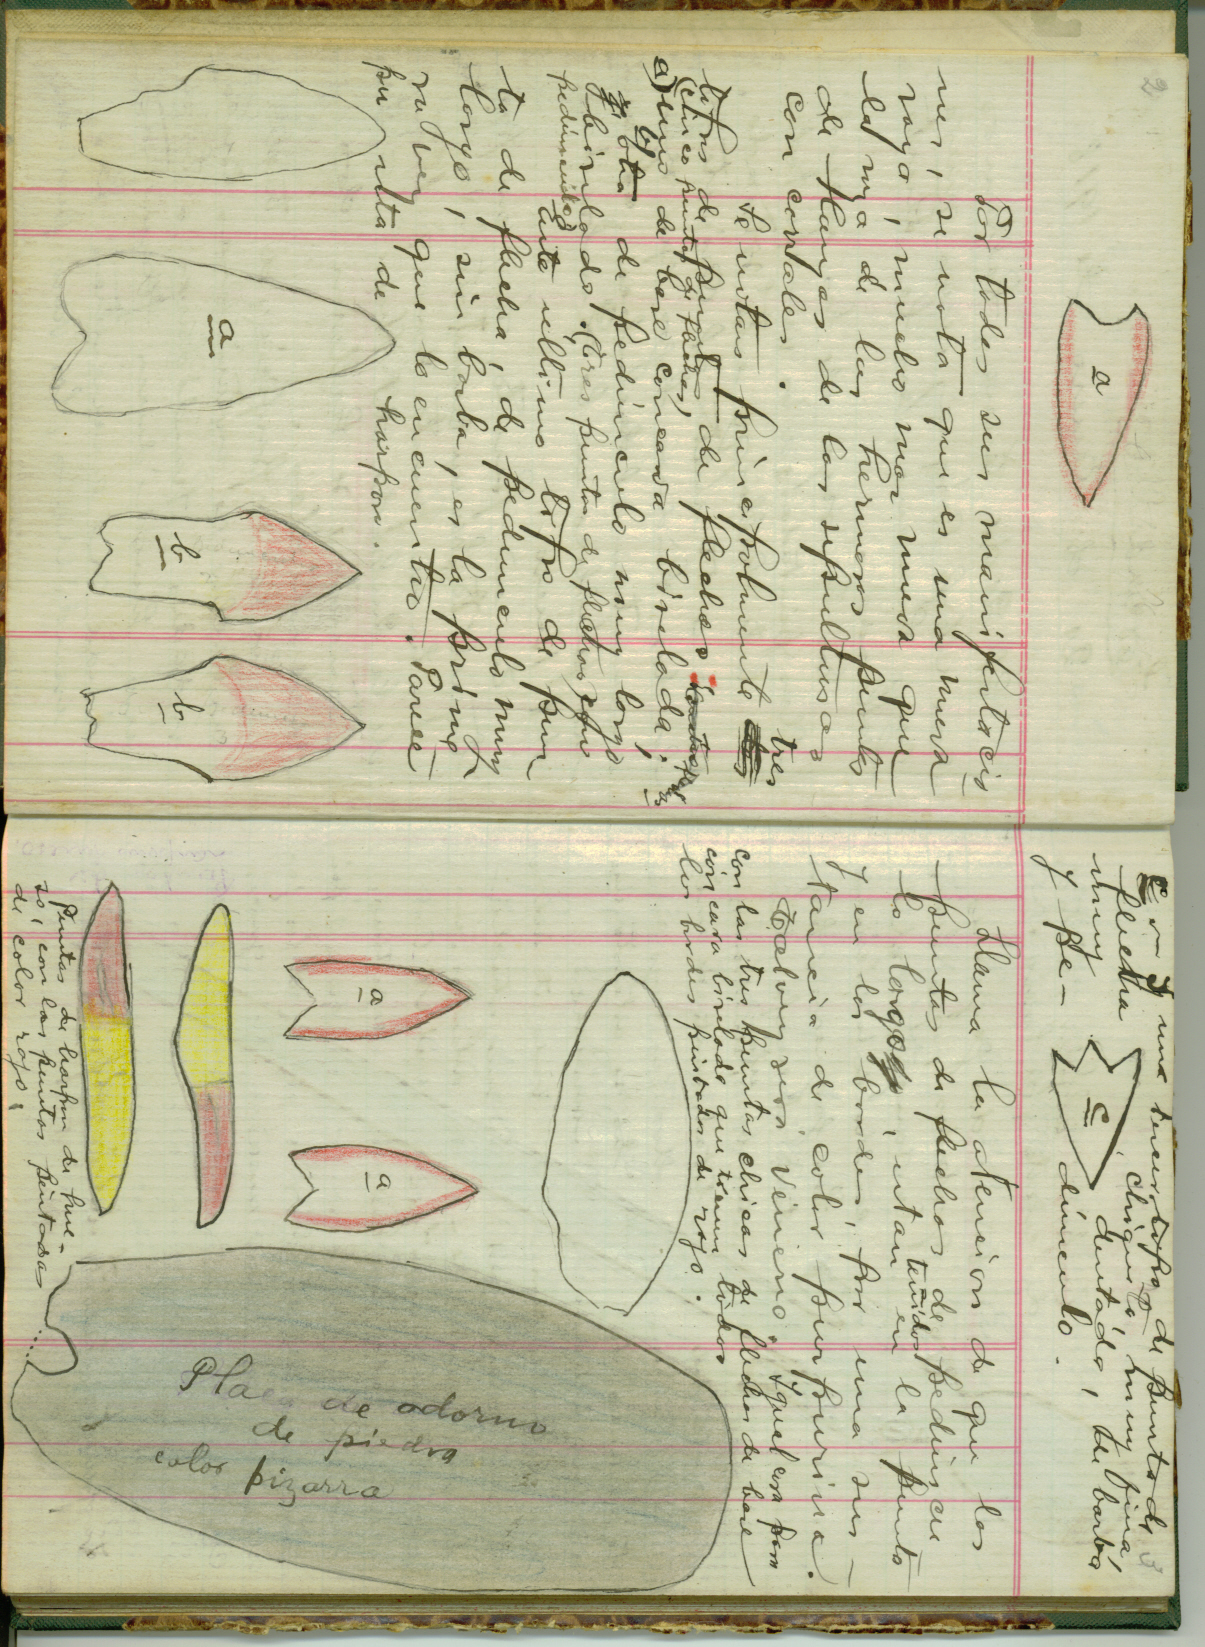 2
a
Por todas sus manifestacio
nes, se nota que es una nueva
raza, mucho mas nueva que
la raza de las hermosas puntas
de flangas de las sepulturas
con corales.
Se notan principalmente tres
tipos de puntas de flechas
(cinco puntas
a) uno de base concava biselada;
b) otra de pedúnculo muy largo
y biselado. (tres puntas de flechas)
Este ultimo tipo de pun
ta de flecha, de pedunculo muy
largo, sin barba, es la prime
ra vez que lo encuentro. Parece
ser esta de harpon.
a
b
b
3
c y una tercer tipo de punta de
flecha chiquita, muy fina,
muy dentada, de barba
y pe-
c
dúnculo.
Llama la atencion de que las
puntas de flechas de pedúncu
lo largo, estan teñidos en la punta
y en los bordes, por una sus-
tancia de color purpurina.
Talvez será veneno. Igual cosa pasa
con las tres puntas chicas de flechas de base
concava biselada que tienen todos
los bordes pintados de rojo.
a
a
Puntas de harpon de hue-
so, con las puntas pintadas
de color rojo.
Placa de adorno
de piedra
color pizarra